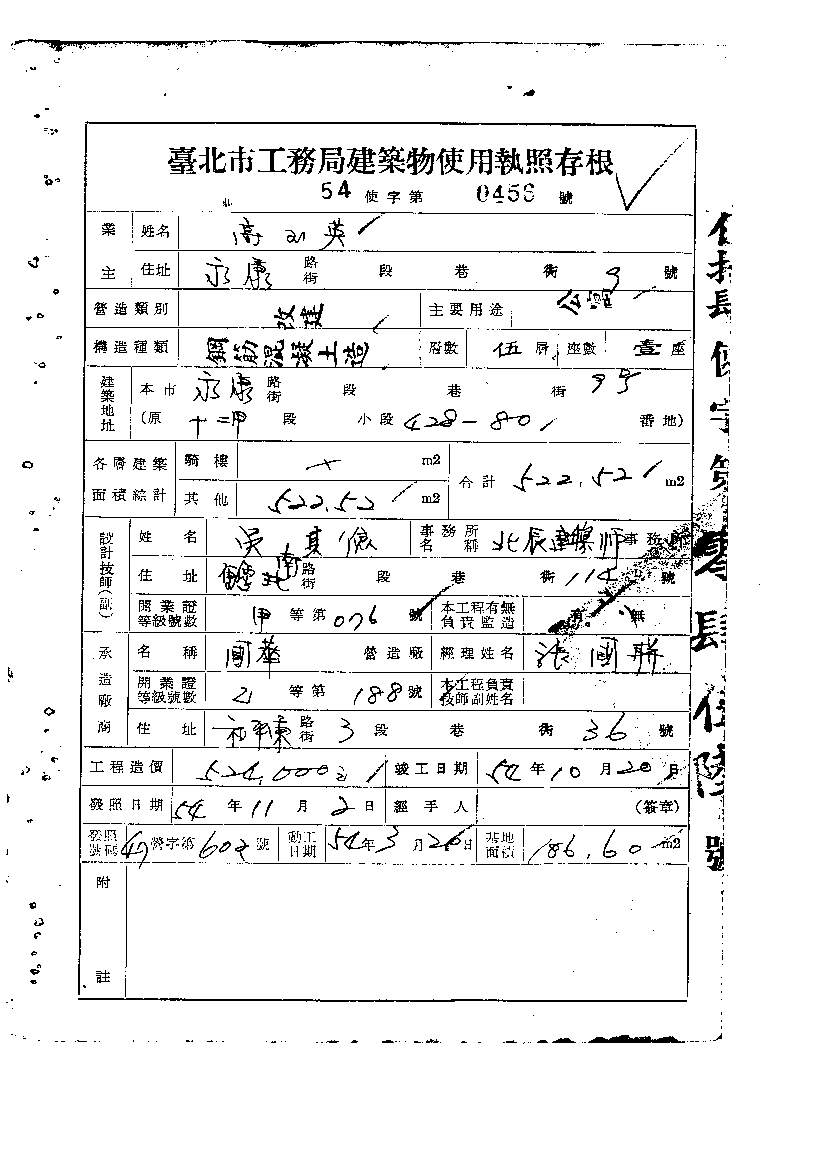 臺北市工務局建築物使用執照存根
54 使字第 0456 號
業主 姓名 高 英
住址 永康 路街 段 巷 衖 9 號
營造類別 改建 主要用途 公寓
構造種類 鋼筋混凝土造 層數 伍 層 座數 壹 座
建築地址 本市 永康 路街 段 巷 衖 9号
(原 十二甲 段 小段 428-80 番地)
各層建築面積綜計 騎樓 × m2 合計 522.52 m2
其他 522.52 m2
設計技師(副) 姓名 吳其 事務所名稱 北辰建築師事務所
住址 南路街 段 巷 衖 114 號
開業證等級號數 甲 等第 076 號 本工程有無負責監造 無
承造廠商 名稱 國華 營造廠 經理姓名 張國
開業證等級號數 乙 等第 188 號 本工程負責技師副姓名
住址 路街 3 段 巷 衖 36 號
工程造價 524,000 竣工日期 54 年 10 月 20 日
發照日期 54 年 11 月 2 日 經手人 (簽章)
發照號碼 營字第 號 動工日期 54 年 3 月 26 日 基地面積 186.60 m2
附註
使字第零肆伍陸號